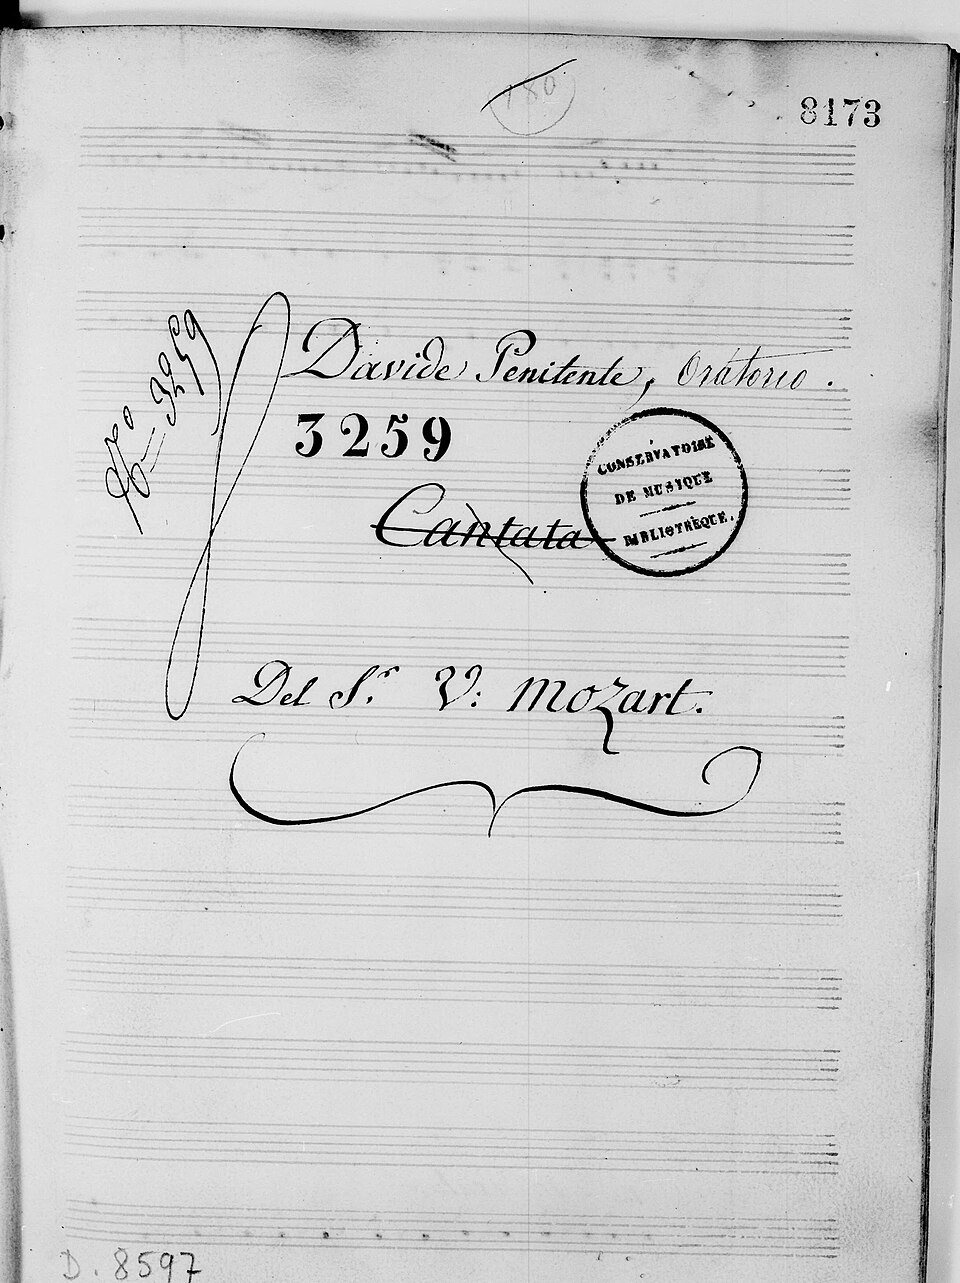 180
8173
Davide Penitente, Oratorio.
3259
3259
Cantata
CONSERVATOIRE
DE MUSIQUE
BIBLIOTHÈQUE.
Del S.r V: Mozart.
D. 8597